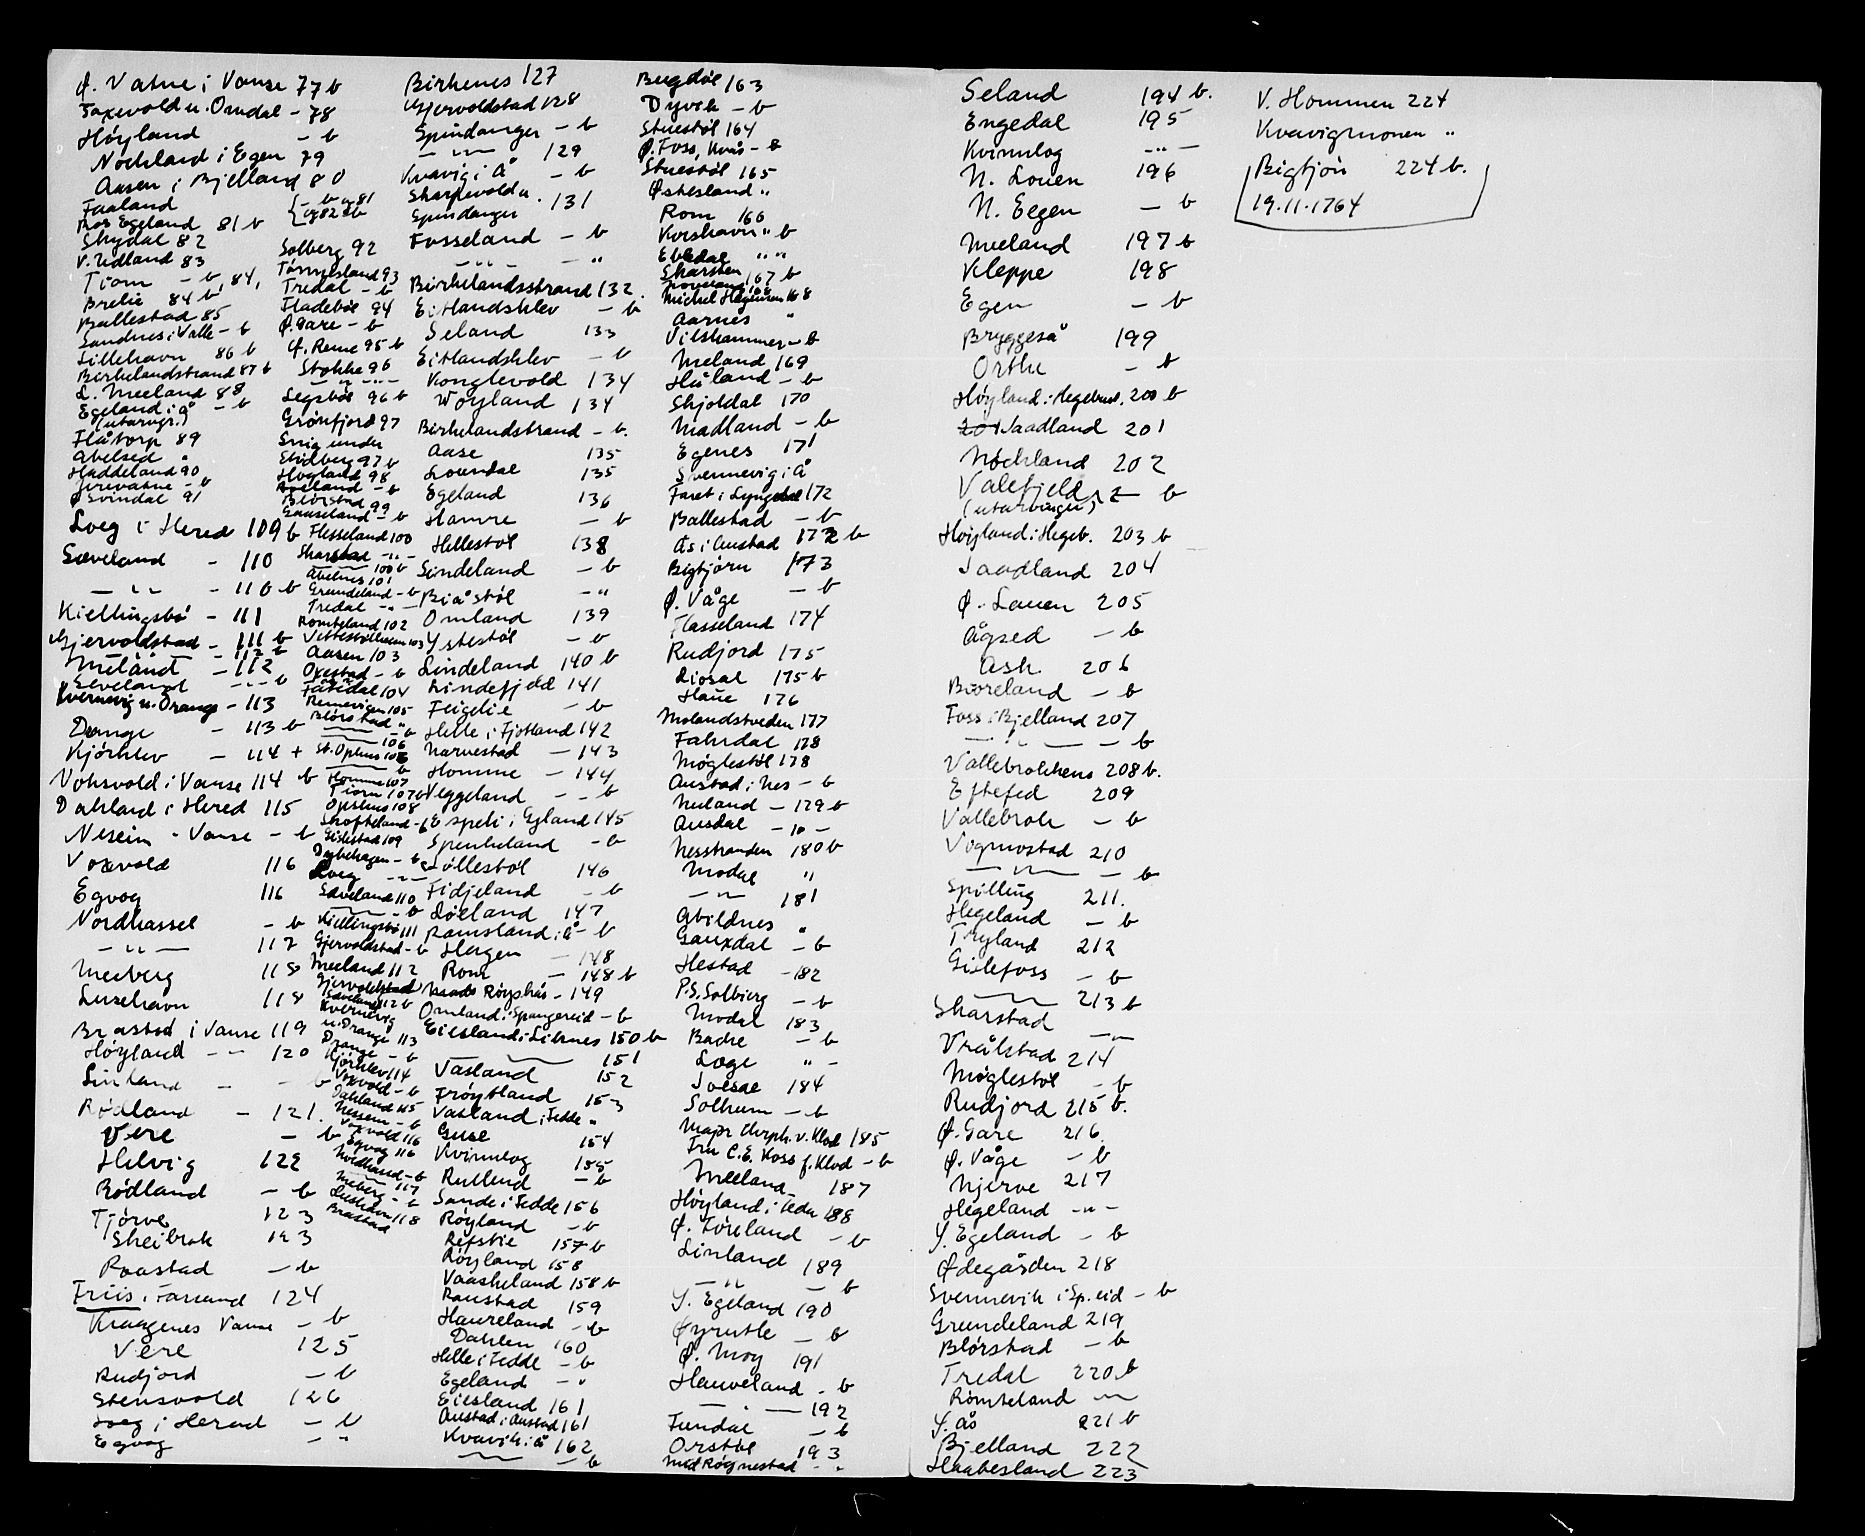 Ø. Vatne i Vanse 77 b
Faxevold u. Omdal - 78
Höyland - b
Nöchland i Egen 79
Aasen i Bjelland 80
Faaland - b og 81
og 82 b
Egeland 81 b
Skydal 82
V. Udland 83
Tiom - b, 84,
Brelie 84 b
Ballestad 85
Sandnes i Valle - b
Lillehavn 86 b
Birkelandstrand 87 b
L. Meeland 88
Egeland i Å - b
(utarvgr.)
Flåtorp 89
Abelsed "
Haddeland 90
Jerevatne - b
Ø Svindal 91
Loeg i Hered 109 b
Sæveland - 110
- " - - 110 b
Kiellingsbö - 111
Gjervoldstad - 111 b
- 112 b
Meland - 112
Seveland - - b
Kvernevig u. Drange - 113
Drange - 113 b
Kjörklev - 114 +
Vohsvold i Vanse 114 b
Dahland i Hered 115
Nesein - Vanse - b
Voxvold 116
Egvog 116
Nordhassel - b
- " - 117
Meeberg 118
Lusehavn 118
Brastad i Vanse 119
Höyland - - 120
Linland - - b
Rødland - 121.
Vere - b
Helvig 122
Rødland - b
Tjörve 123
Skeibrok 123
Raastad - b
Friis i Farsund 124
Kraagenes Vanse - b
Vere 125
Rudjord - b
Stensvold 126
Loeg i Herad - b
Egvog - "
Solberg 92
Tönnesland 93
Tredal - b
Fladebøe 94
Ø. Gare - b
Ø. Reme 95 b
Stokke 96
- " - " -
Legsböe 96 b
Grönfjord 97
Snig under
Stödberg 97 b
Hovland 98
- b
Blörstad 99
Gauseland - b
Flesseland 100
Skarstad - " -
100 b
Abelnes 101
Grundeland - b
Tredal - " -
Römteland 102
103
Aasen 103
Oxestad - b
Fardal 104
Remevigen 105
Blörstad "
- b
106
St. Opsius 106
- b
Homme 107
Tiom 107 b
Opsius 108
Skofteland - b
Gislestad 109
Dybehagen - b
Loeg - " -
Sæveland 110
- b
Kiellingsbö 111
Gjervoldstad - b
Meeland 112
Gjervoldstad
Sæveland 112 b
Kvernevig
u. Drange 113
Drange - b
Kjörklev 114
Voxvold - b
Dahland 115
Nessein - b
Voxvold 116
Egvog 116
Nordhassel - b
- " - 117
Meberg - b
Lushavn 118
Brastad
Birkenes 127
Gjervoldstad 128
Spindanger - b
- " - 129
Kvavig i Å - b
Skarpevold u.
Spindanger 131
Fosseland - b
- " - - "
Birkelandsstrand 132
Eitlandsklev - b
Seland 133
Eitlandsklev - b
Konglevold 134
Wöyland 134
Birkelandstrand - b.
Aase 135
Loundal 135
Egeland 136
Hamre - b
Hellestöl 138
Lindeland - b
Biåstöl - "
Omland 139
Ystestöl - b
Lindeland 140 b
Lindefjeld 141
Feigelie - b
Helle i Fjotland 142
Narvestad - 143
Homme - 144
Veggeland - - b
Espeli i Gyland 145
Spenkeland - b
Söllestöl 146
Fidjeland - b
Löeland 147
Ramsland i Å - b
Hergen - 148
Rom - 148 b
Mads Röyskår - 149
Omland i Spangereid - b
Eitsland i Liknes 150 b
- " - 151
Vasland 152
Fröytland 153
Vatland i Fedde "
Guse 154
Kvinnlog 155
Rullend - b
Sande i Fedde 156
Röyland - b
Refstie 157 b
Röyland 158
Vaaskeland 158 b
Raustad 159
Haureland - b
Dahlen 160
Helle i Fedde - b
Egeland - "
Eitsland 161
Austad i Austad 161
Kvavik i Å 162
- " - - b
Bugdöl 163
Dyveh - b
Stuestöl 164
Ø. Foss, Kvås - b
Stuestöl 165
Østesland "
Rom 166
Korshavn " b
Ebbdal " "
Skarsten 167 b
168
Michel Hegensen 168
Aarnes "
Vilshammer - b
Meland 169
Huland - b
Skjoldal 170
Madland - b
Egenes 171
Svennevig i Å
Faret i Lyngdal 172
Ballestad - b
Ås i Austad 172 b
Bigtjörn 173
Ø. Våge - b
Flasseland 174
Rudjord 175
Liosal 175 b
Haue 176
Molandsveden 177
Fahrdal 178
Möglestöl 178
Austad i Nes - b
Nuland - 179 b
Ausdal - " -
Nesstranden 180 b
Modal "
- " - 181
Abildnes "
Gauxdal - b
Hestad - 182
P.S. Solbierg - b
Modal 183
Badre - b
Loge " -
Joesae 184
Solhum - b
Major Chrph. v. Klod 185
Fru C.E. Koss f. Klod - b
Meeland 187
Höyland i Feda 188
Ø. Föreland - b
Linland 189
- " - b
Y. Egeland 190
Öyrutle - b
Ø. Moy 191
Hauveland - b
- " - 192
Fundal - b
Orstöl 193
Med Røgnestad - "
Seland 194 b.
Engedal 195
Kvinnlog - " -
N. Louen 196
N. Eegen - b
Meeland 197 b
Kleppe 198
Egen - b
Bryggeså 199
Orthe - b
Höyland i Hegebost. 200 b
Jaadland 201
Nöchland 202
Valefjeld - b
(utarvinger)
Höyland i Hegeb. 203 b
Jaadland 204
Ø. Lauen 205
Ågsed - b
Ask 206
Bioreland - b
Foss i Bjelland 207
- " - - b
Vallebrokkens 208 b.
Eftefed 209
Vallebrok - b
Vogmostad 210
- " - - b
Spilling 211.
Hegeland - b
Tryland 212
Gislefoss - b
- " - 213 b
Skarstad - " -
Vrålstad 214
Möglestöl - b
Rudjord 215 b.
Ø. Gare 216
Ø. Våge - b
Njerve 217
Hegeland - " -
Y. Egeland - b
Ødegården 218
Svennevik i Sp.eid - b
Grundeland 219
Blörstad - b
Tredal 220 b
Römteland - " -
Y. Ås 221 b
Bjelland 222
Haabesland 223
V. Hommen 224
Kvavigmonen "
Bigtjön 224 b.
19.11.1764